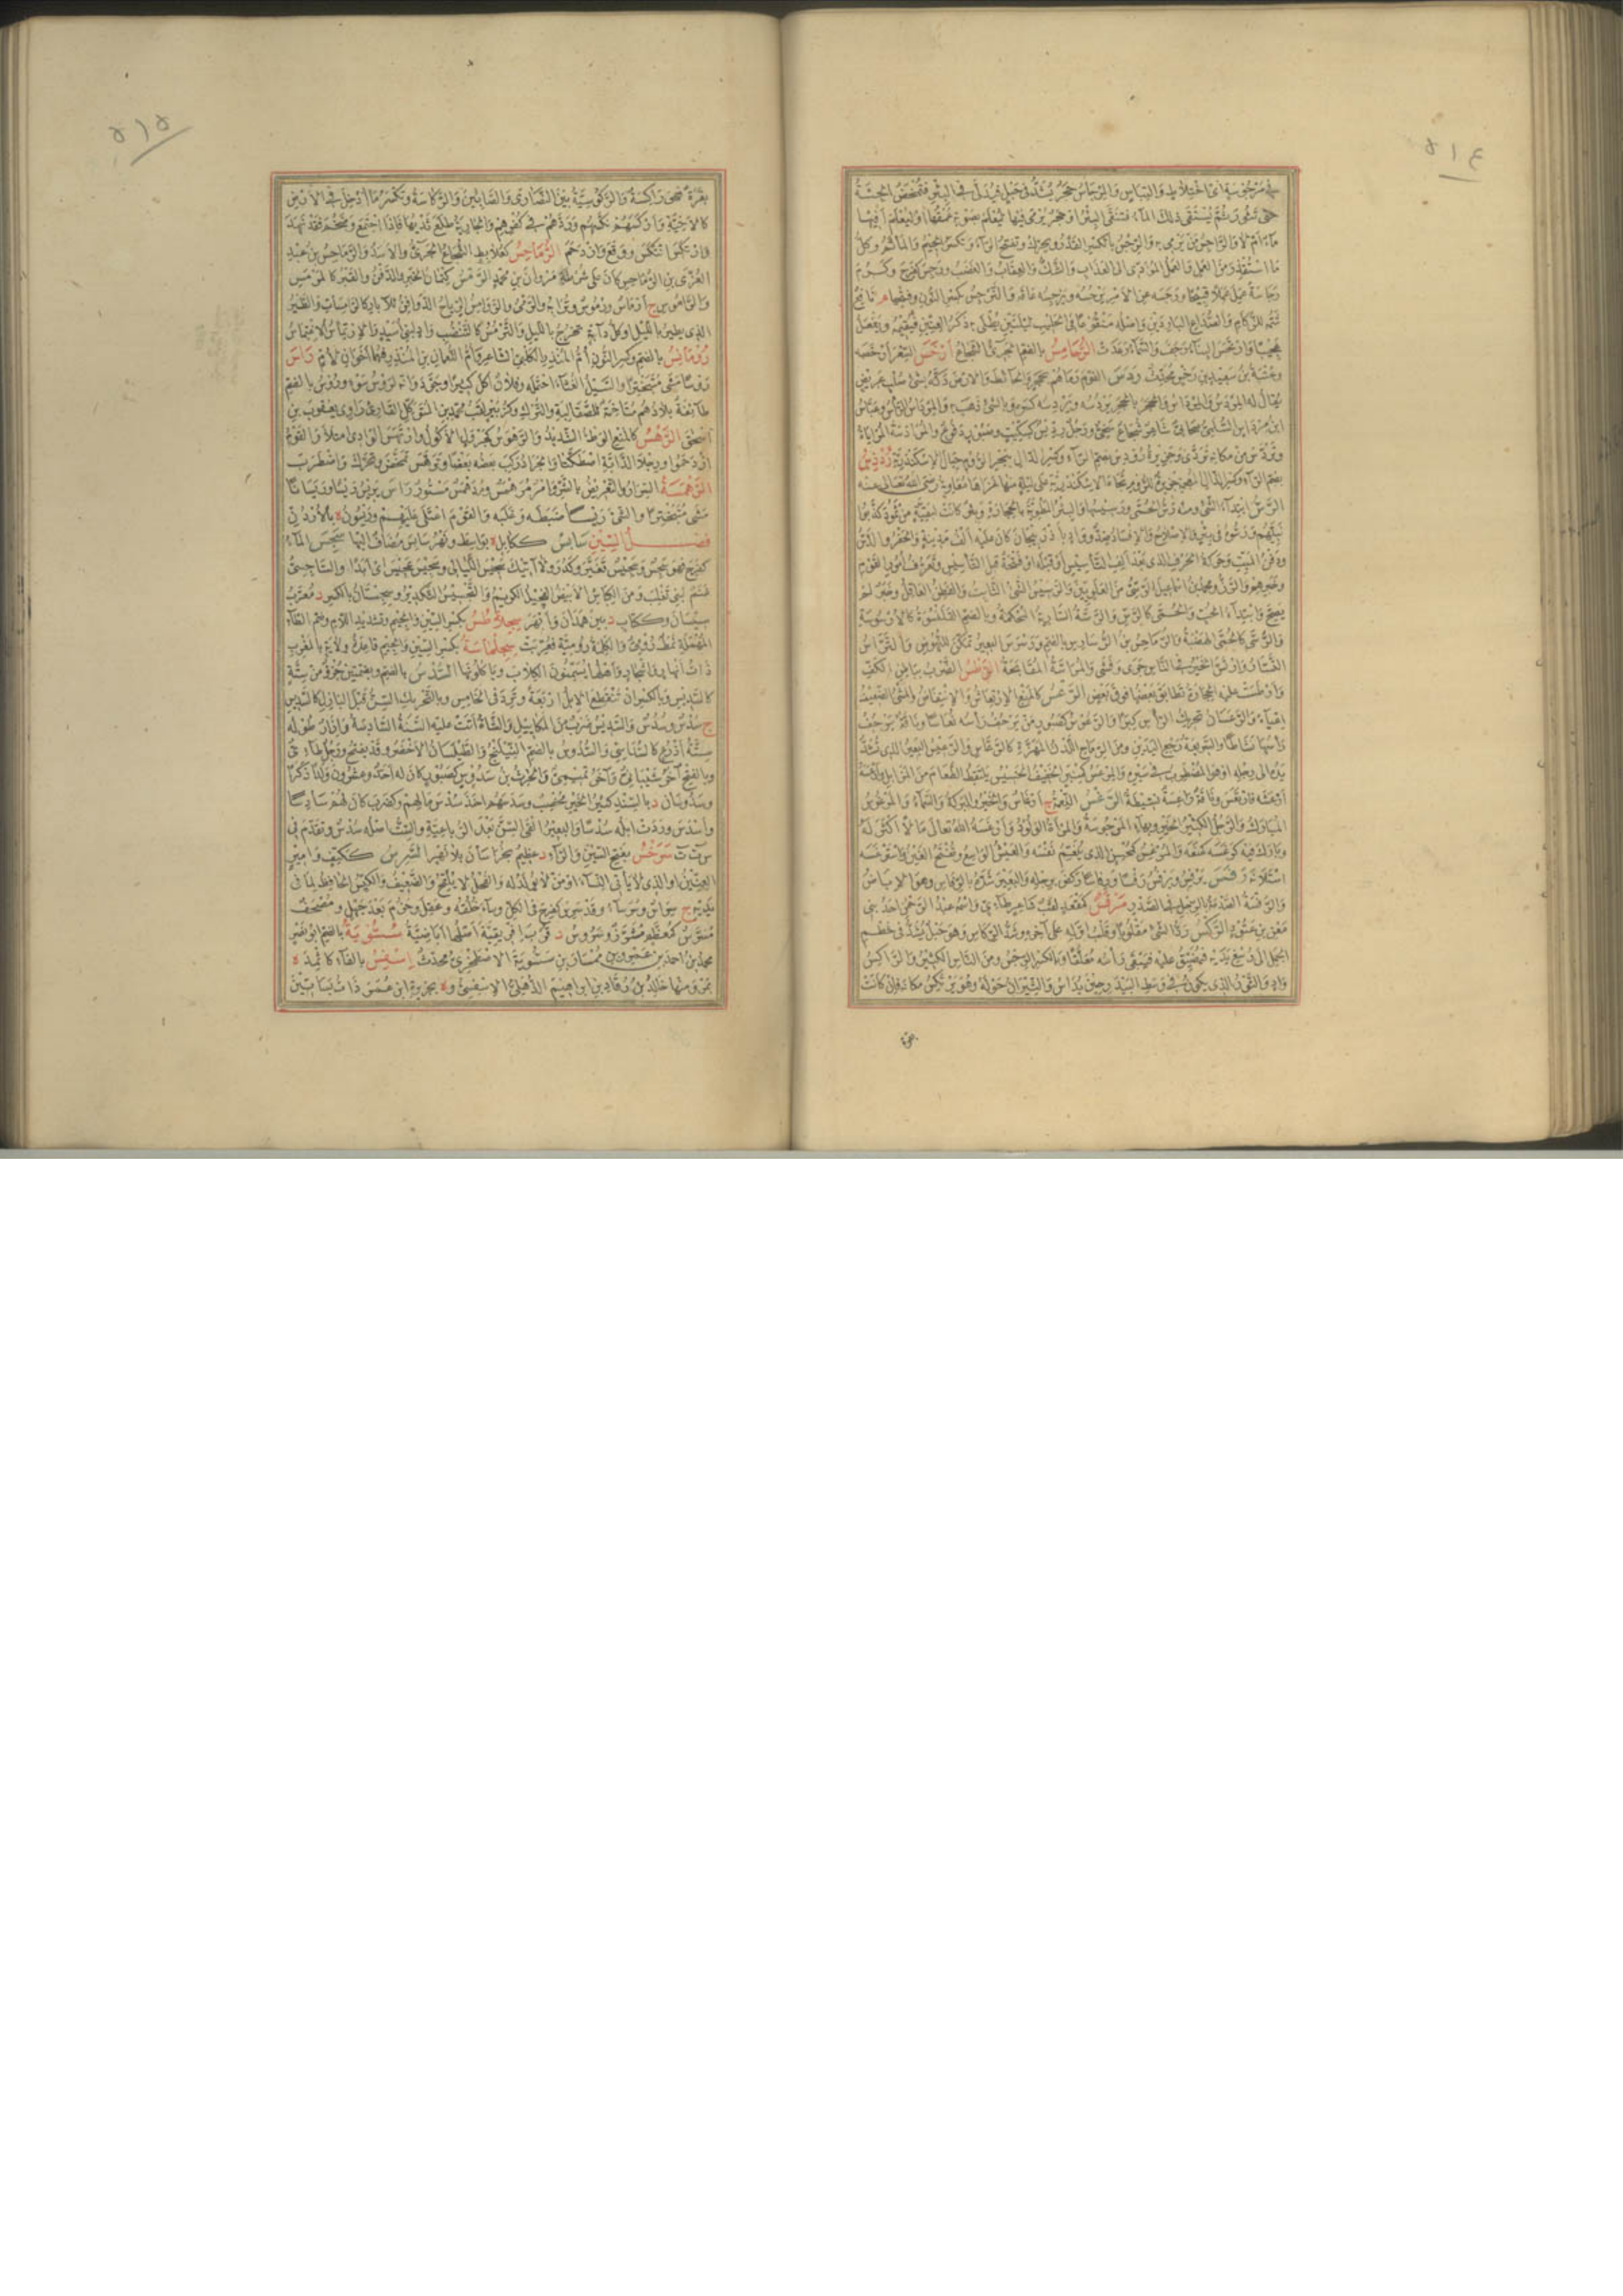 ٥١٤
في مرجوسة اي اختلاط والتباس والمرجاس حجر يشد في حبل فيدلى في البئر فتمخض الحمأة
حتى تثور ثم يستقى ذلك الماء فتنقى البئر او حجر يرمى فيها ليعلم بصوته عمقها او ليعلم افيها
ماء ام لا والراجس من يرمي به والرجس بالكسر القذر ويحرك وتفتح الراء وتكسر الجيم والمأثم وكل
ما استقذر من العمل والعمل المؤدي الى العذاب والشك والعقاب والغضب ورجس كفرح وكرم
رجاسة عمل عملا قبيحا ورجسه عن الامر يرجسه ويرجسه عاقه والنرجس بكسر النون وفتحها م نافع
شمه للزكام والصداع الباردين واصله منقوعا في الحليب ليلتين يطلى به ذكر العنين فيقيمه ويفعل
عجيبا وارتجس البناء رجف والسماء رعدت الرحامس بالضم الجريء الشجاع أرخس السعر أرخصه
وعتبة بن سعيد بن رخس محدث ردس القوم رماهم بحجر والحائط والارض دكه بشيء صلب عريض
يقال له المردس والمرداس والحجر بالحجر يردسه ويردسه كسره وبالشيء ذهب به والمرداس الرأس وعباس
ابن مرداس السلمي صحابي شاعر شجاع سخي ورجل رديس كسكيت وصبور دفوع والمرادسة المراياة
وتردس من مكانه تردى وجزيرة رودس بضم الراء وكسر الدال ببحر الروم حيال الاسكندرية رذوس
بضم الراء وكسر الذال المعجمة جزيرة للروم تجاه الاسكندرية على ليلة منها غزاها معاوية رضي الله تعالى عنه
الرس ابتداء الشيء ومنه رس الحمى ورسيسها والبئر المطوية بالحجارة وبئر كانت لبقية من ثمود كذبوا
نبيهم ورسوه في بئر والاصلاح والافساد ضد وواد باذربيجان كان عليه الف مدينة والحفر والدس
ودفن الميت وحركة الحرف الذي بعد الف التأسيس او قبله او فتحة قبل التأسيس وتعرف امور القوم
وخبرهم والرسي ومحمد بن اسماعيل الرسي من العلويين والرسيس الشيء الثابت والفطن العاقل وخبر لم
يصح وابتداء الحب والحمى كالرس والرسة السارية المحكمة وبالضم القلنسوة كالارسوسة
والرسى كالحمى الهضبة والرماحس بن الرسارس بالضم ورسرس البعير تمكن للنهوض والترسس
وارتس الخبر في الناس جرى وفشى والمراسة المفاتحة الرطس الضرب بباطن الكف
وارطست عليه الحجارة تطابق بعضها فوق بعض الرعس كالمنع الارتعاش والانتفاض والمشي الضعيف
اعياء والرعسان تحريك الرأس كبرا والرعوس كصبور من يرجف رأسه نعاسا وناقة يرجف
رأسها نشاطا والسريعة رجع اليدين ومن الرماح اللدن المهزة كالرعاس والرعيس البعير الذي تشد
يده الى رجله او هو المضطرب في سيره والمرعس كمنبر الخفيف الخسيس يلتقط الطعام من المزابل
ارعسه فارتعس وناقة راعسة نشيطة الرغس النعمة ج ارغاس والخير والبركة والنماء والمرغوس
المبارك والرجل الكثير الخير وبهاء المرجوسة والمرأة الولود وارغسه الله تعالى مالا اكثر له
وبارك فيه كرغسه كمنعه والمرغس كمحسن الذي ينعم نفسه والعيش الواسع وتفتح الغين واسترغسه
استلانه رفس يرفس ويرفس رفسا ورفاسا ركض برجله والبعير شده بالرفاس وهو الاباض
والرفسة الصدمة بالرجل في الصدر مرقس كمقعد لقب شاعر طائي واسمه عبد الرحمن احد بني
معن بن عتود الركس رد الشيء مقلوبا وقلب اوله على اخره وشد الركاس وهو حبل يشد في خطم
الجمل الى رسغ يديه فيضيق عليه فيبقى رأسه معلقا وبالكسر الرجس ومن الناس الكثير والراكس
واد والثور الذي يكون في وسط البيدر حين يداس والثيران حوله وهو يرتكس مكانه فان كانت
بقرة
٥١٥
بقرة فهي راكسة والركوسية بين النصارى والصابئين والركاسة وتكسر ما ادخل في الارض
كالاخية وأركسهم نكسهم وردهم في كفرهم والجارية طلع ثديها فاذا اجتمع وضخم فقد نهد
وارتكس انتكس ووقع وازدحم الرماحس كعلابط الشجاع الجريء والاسد والرماحس بن عبد
العزى بن الرماحس كان على شرطة مروان بن محمد الرمس كتمان الخبر والدفن والقبر كالمرمس
والراموس ج ارماس ورموس وترابه والرمي والروامس الرياح الدوافن للاثار كالرامسات والطير
الذي يطير بالليل او كل دابة تخرج بالليل والترمس كالتنضب واد لبني اسيد والارتماس الاغتماس
رومانس بالضم وكسر النون ام المنذر الكلبي الشاعر وام النعمان بن المنذر فهما اخوان لام راس
روسا مشى متبخترا والسيل الغثاء احتمله وفلان اكل كثيرا وجود وانه لروس سوء وروس بالضم
طائفة بلادهم متاخمة للصقالبة والترك وكزبير لقب محمد بن المتوكل القارئ راوي يعقوب بن
اسحق الرهس كالمنع الوطء الشديد والرهوس كجرول الاكول وارتهس الوادي امتلأ والقوم
ازدحموا ورجلا الدابة اصطكتا والجراد ركب بعضه بعضا وترهس تمخض وتحرك واضطرب
الرهمسة السرار والتعريض بالشر وامر مرهمس ومدهمس مستور راس يريس ريسا وريسانا
مشى متبخترا والشيء ريسا ضبطه وغلبه والقوم اعتلى عليهم وريسون ة بالاردن
فصل السين سابس ككابل ة بواسط ونهر سابس مضاف اليها سجس الماء
كفرح فهو سجس وسجيس تغير وكدر ولا اتيك سجيس الليالي وسجيس عجيس اي ابدا والساجسي
غنم لبني تغلب ومن الكباش الابيض الفحيل الكريم والتسجيس التكدير وسجستان بالكسر د معرب
سيستان وككتاب د بين همذان وابهر سجلاطس بكسر السين والجيم وتشديد اللام وضم الطاء
المهملة نمط رومي والكلمة رومية فعربت سجلماسة بكسر السين والجيم قاعدة ولاية بالمغرب
ذات انهار واشجار واهلها يسمنون الكلاب وياكلونها السدس بالضم وبضمتين جزء من ستة
كالسديس وبالكسر ان تنقطع الابل اربعة وترد في الخامس وبالتحريك السن قبل البازل كالسديس
ج سدس وسدس والسديس ضرب من المكاييل والشاة اتت عليه السنة السادسة وازار طوله
ستة اذرع كالسداسي والسدوس بالضم النيلنج والطيلسان الاخضر وقد يفتح ورجل طائي
وبالفتح اخر شيباني واخر تميمي والحرث بن سدوس كصبور كان له احد وعشرون ولدا ذكرا
وسدوسان د بالسند كثير الخير مخصب وسدسهم اخذ سدس مالهم وكضرب كان لهم سادسا
واسدس وردت ابله سدسا والبعير القى السن بعد الرباعية والست اصله سدس وتقدم في
س ت ت سرخس بفتح السين والراء د عظيم بخراسان بلا نهر السرس ككتف وامير
العنين او الذي لا يأتي النساء او من لا يولد له والفحل لا يلقح والضعيف والكيس الحافظ لما في
يديه ج سراس وسرساء وقد سرس كفرح في الكل وساء خلقه وعقل وحزم بعد جهل ومصحف
مسرس كمعظم مشرز وسروس د قرب افريقية اهلها اباضية سسنويه بالضم ابو نصر
محمد بن احمد بن عمر بن ممشاد بن سسنويه الاصطخري محدث اسفس بالفاء كاثمد ة
بمرو منها خالد بن رقاد بن ابراهيم الذهلي الاسفسي و ة بجزيرة ابن عمر ذات بساتين